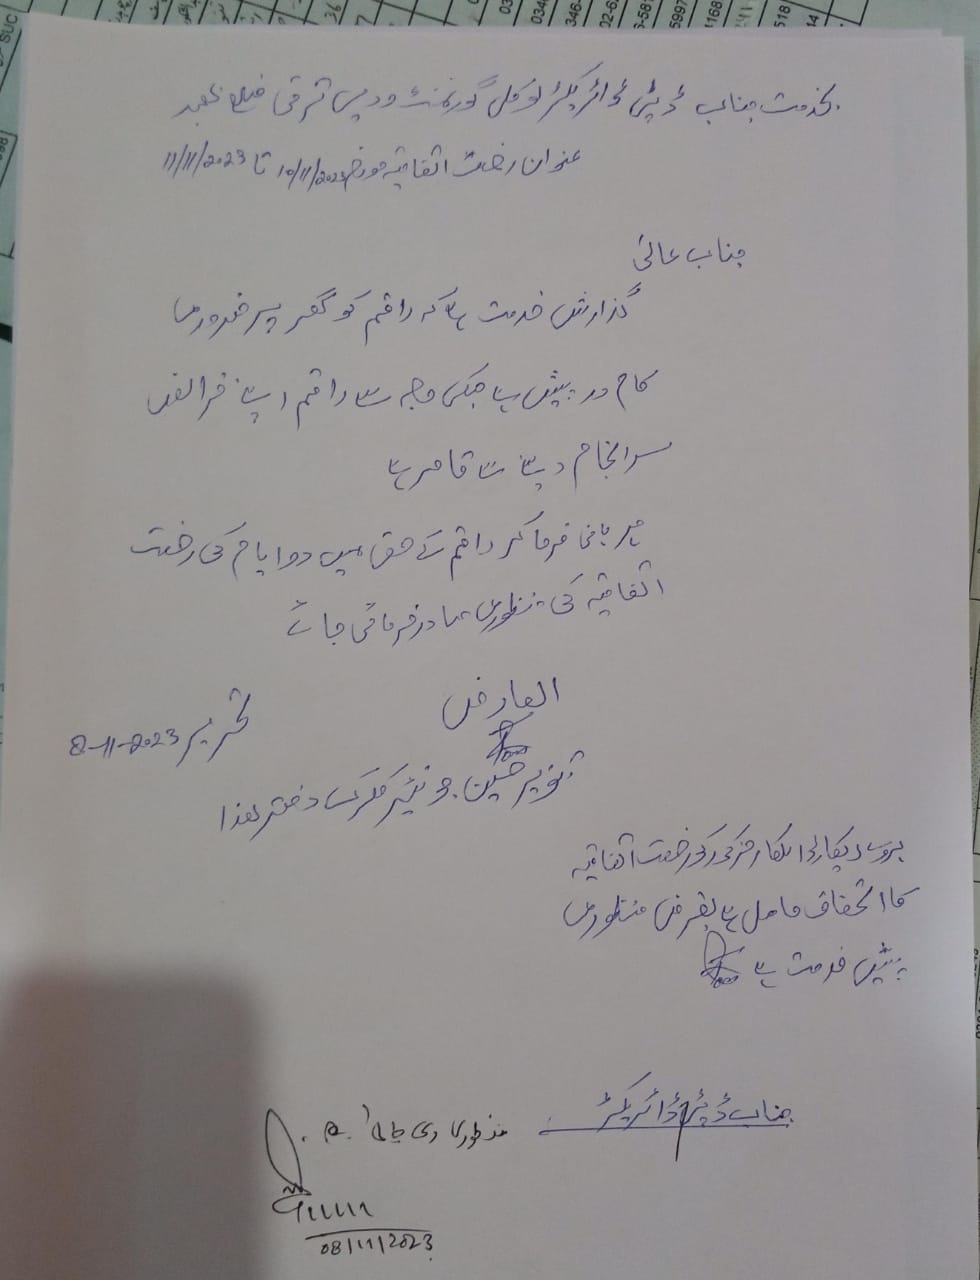 بخدمت جناب ڈپٹی ڈائریکٹر لوکل گورنمنٹ و دیہی ترقی ضلع
عنوان رخصت اتفاقیہ مورخہ 10/11/2023 تا 11/11/2023
جناب عالی
گذارش خدمت ہے کہ راقم کو گھر پر ضروری
کام در پیش ہے جسکی وجہ سے راقم اپنے فرائض
سرانجام دینے سے قاصر ہے
مہربانی فرما کر راقم کے حق میں دو ایام کی رخصت
اتفاقیہ کی منظوری صادر فرمائی جائے
العارض
تحریر 8-11-2023
تنویر حسین جونئیر کلرک دفتر ھذا
بروے ریکارڈ اہلکار مذکور کو رخصت اتفاقیہ
کا استحقاق حاصل ہے بغرض منظوری
پیش خدمت ہے
جناب ڈپٹی ڈائریکٹر
منظوری دی جاتی ہے۔
08/11/2023